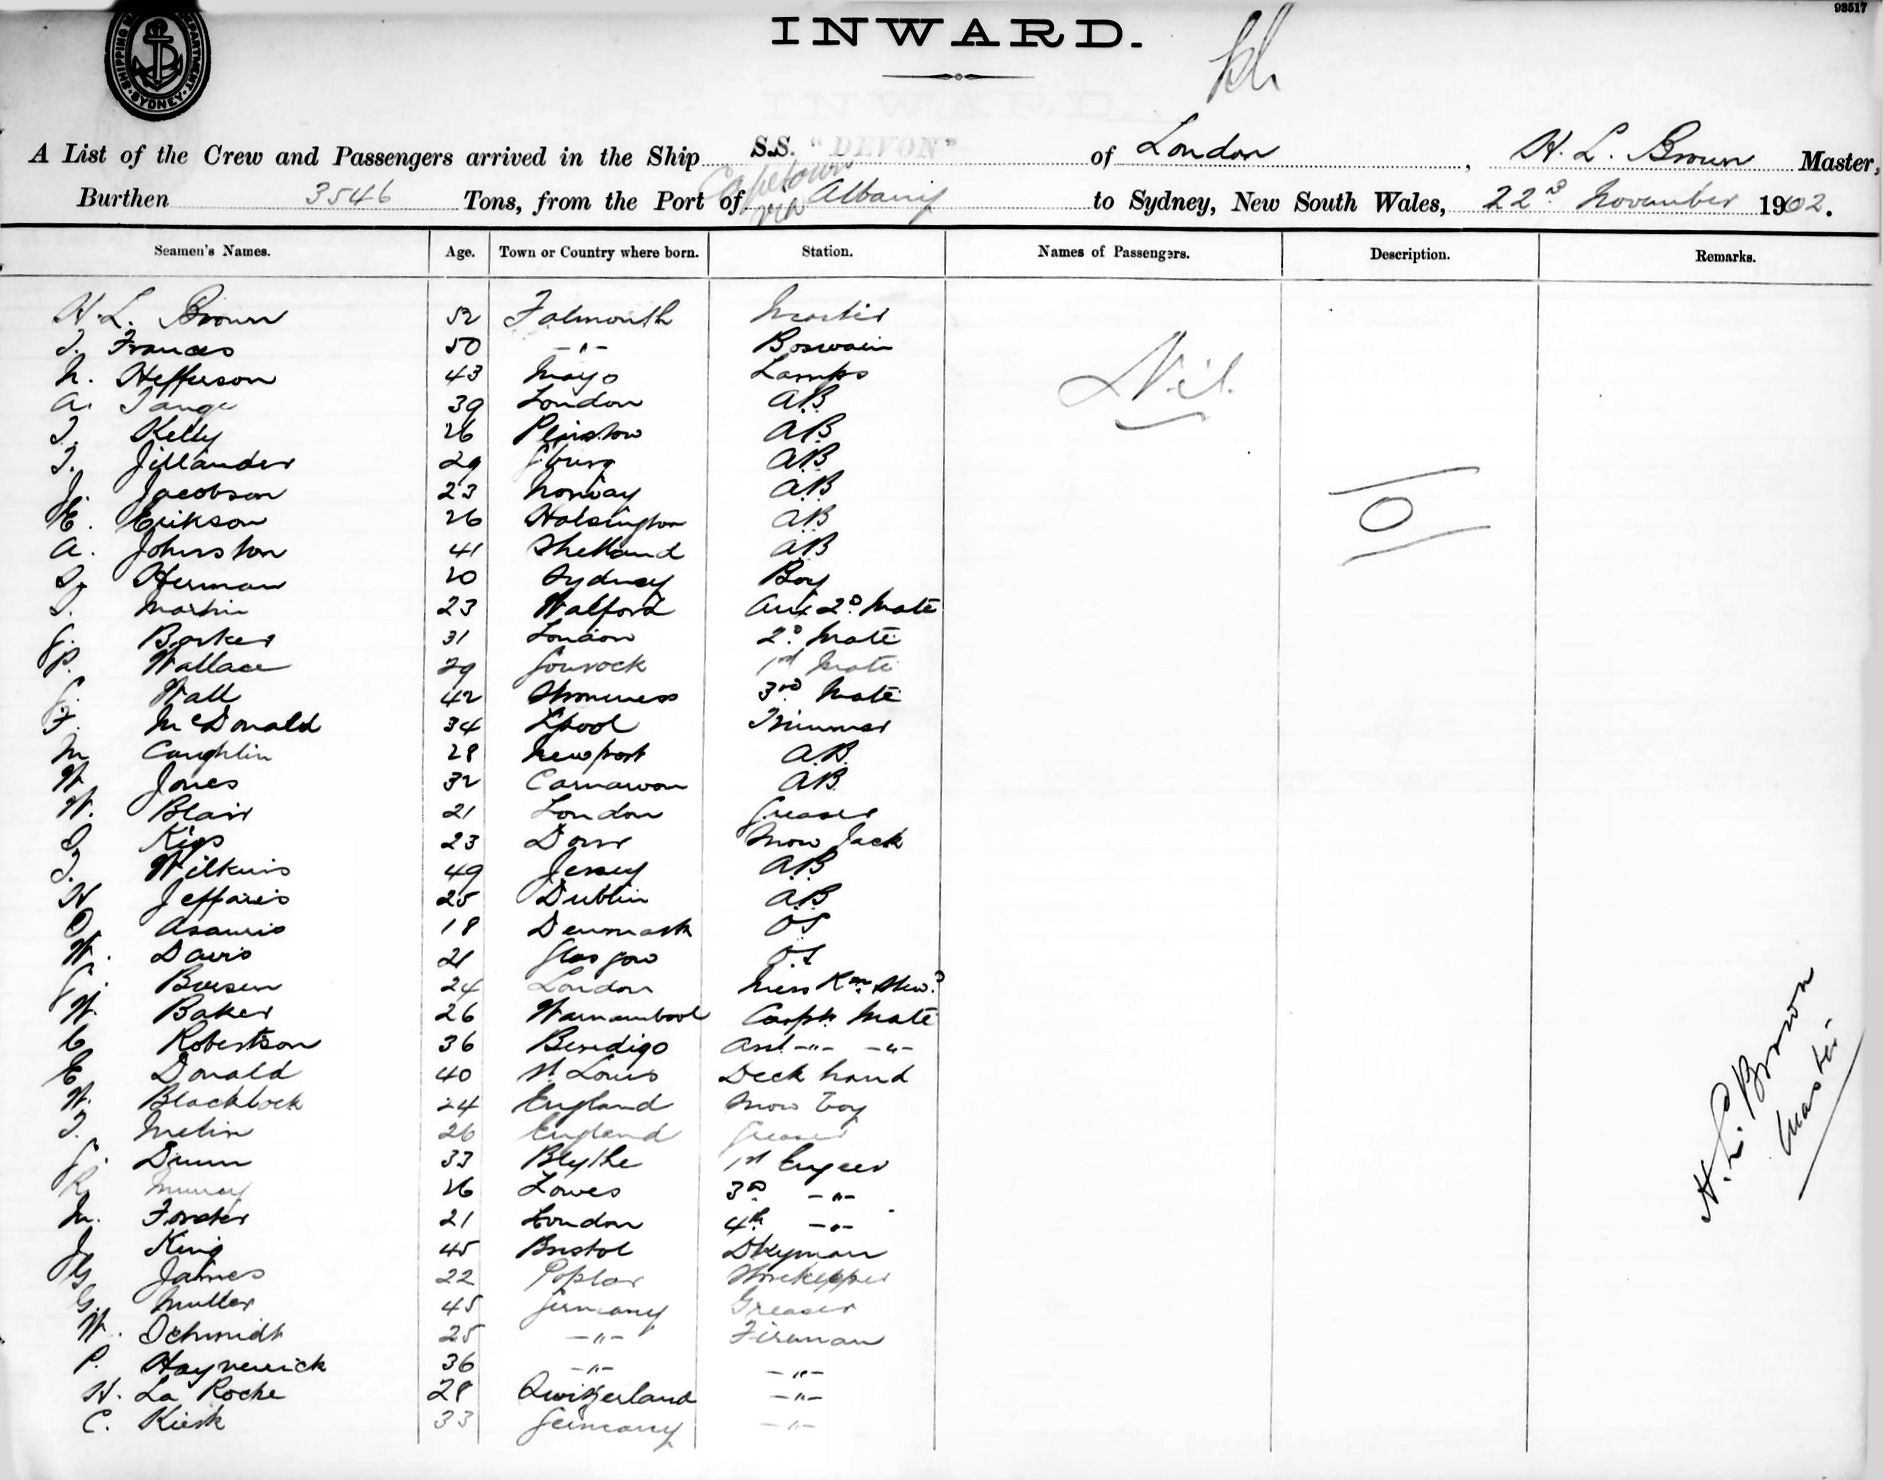 93517
SHIPPING DEPARTMENT. SYDNEY
INWARD.
A List of the Crew and Passengers arrived in the Ship S.S. "DEVON" of London, H. L. Brown Master,
Burthen 3546 Tons, from the Port of Capetown via Albany to Sydney, New South Wales, 22nd November 1902.
Seamen's Names. Age. Town or Country where born. Station. Names of Passengers. Description. Remarks.
H. L. Brown 52 Falmouth Master
T. Frances 50 -"- Boswain
N. Hefferson 43 Mayo Lamps
Nil.
A. Tange 39 London A.B
T. Kelly 26 Plaistow A.B
T. Jillander 29 A.B
J. Jacobson 23 Norway A.B
O
E. Erikson 26 Halsington A.B
A. Johnston 41 Shetland A.B
Herman 20 Sydney Boy
T. Martin 23 Walford Aux 2D Mate
J. Barker 31 London 2D Mate
P. Wallace 29 Gourock 1st Mate
J. Wall 42 Stromness 3rd Mate
F. McDonald 34 L'pool Trimmer
M Coughlin 28 Newport A.B.
W. Jones 32 Carnarvon A.B.
W. Blair 21 London Greaser
23 Snow Jack
T. Wilkins 49 Jersey A.B
H Jefferies 25 Dublin A.B
18 Denmark OS
W. Davis 21 Glasgow OS
J. 24 London Mess Rm Stwd
W. Baker 26 Warnambool Carptr Mate
C. Robertson 36 Bendigo Asst -"- -"-
E. Donald 40 St Louis Deck hand
W. Blacklock 24 England Snow boy
T. Melin 26 England Greaser
J. Dunn 33 Blythe 1st Engeer
R. Murray 26 Lowes 3D -"-
M. Forster 21 London 4th -"-
J. King 45 Bristol Dkyman
G. James 22 Poplar Storekepper
G. Muller 45 Germany Greaser
W. Schmidt 25 -"- Fireman
P. 36 -"- -"-
H. La Roche 28 Switzerland -"-
C. Kiesk 33 Germany -"-
H. L. Brown
Master